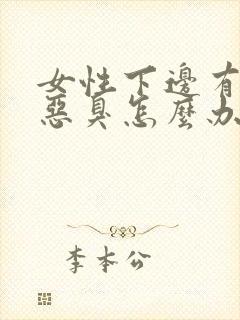 女性下邊有
惡臭怎麼办
李本公